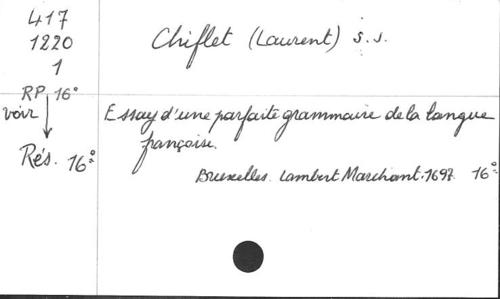 417
1220
1
RP 16°
voir
Rés. 16°
Chiflet (Laurent) s.j.
Essay d'une parfaite grammaire de la langue
française.
Bruxelles. Lambert Marchant. 1697. 16°